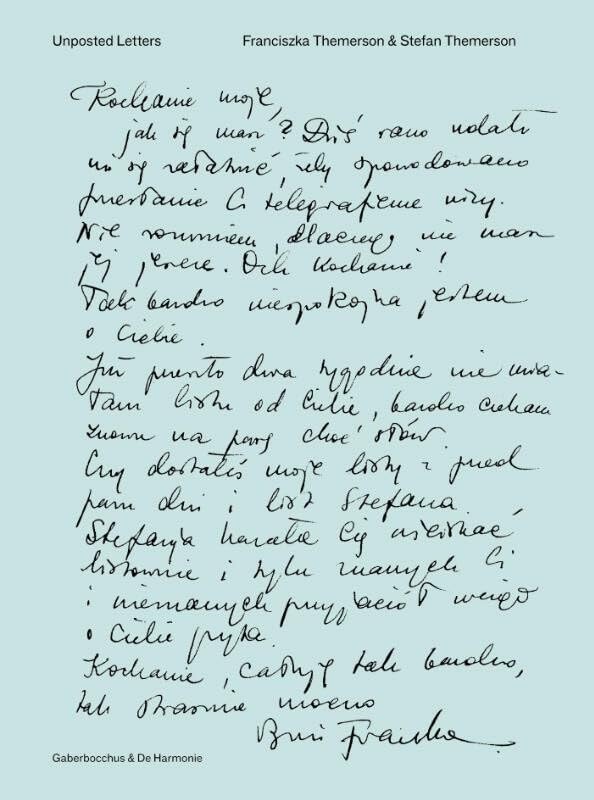 Unposted Letters Franciszka Themerson & Stefan Themerson
Kochanie moje,
jak się masz? Dziś rano udało
mi się załatwić, żeby spowodowano
przesłanie Ci telegraficzne wizy.
Nie rozumiem, dlaczego nie masz
jej jeszcze. Och Kochanie!
Tak bardzo niespokojna jestem
o Ciebie.
Już przeszło dwa tygodnie nie mia-
łam listu od Ciebie, bardzo czekam
znowu na parę choć słów.
Czy dostałeś moje listy z przed
paru dni i list Stefana.
Stefania kazała Cię uściskać
listownie i tylu znanych Ci
i nieznanych przyjaciół wciąż
o Ciebie pyta.
Kochanie, całuję tak bardzo,
tak strasznie mocno
Franciszka
Gaberbocchus & De Harmonie